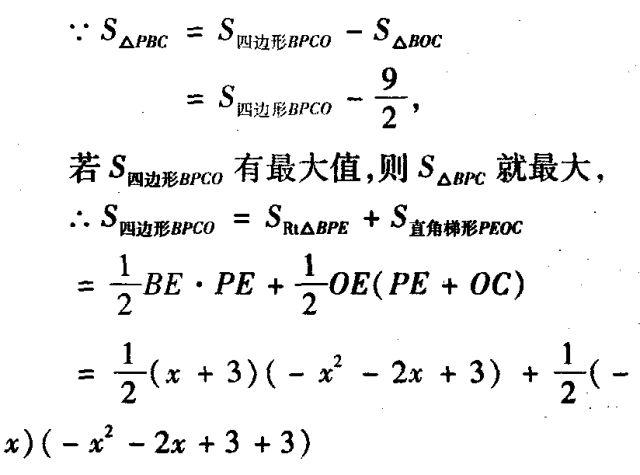 ∵ S△PBC = S四边形BPCO − S△BOC
= S四边形BPCO − 9/2,
若 S四边形BPCO 有最大值,则 S△BPC 就最大,
∴ S四边形BPCO = SRt△BPE + S直角梯形PEOC
= 1/2 BE · PE + 1/2 OE(PE + OC)
= 1/2 (x + 3)( − x² − 2x + 3) + 1/2 ( −
x)( − x² − 2x + 3 + 3)